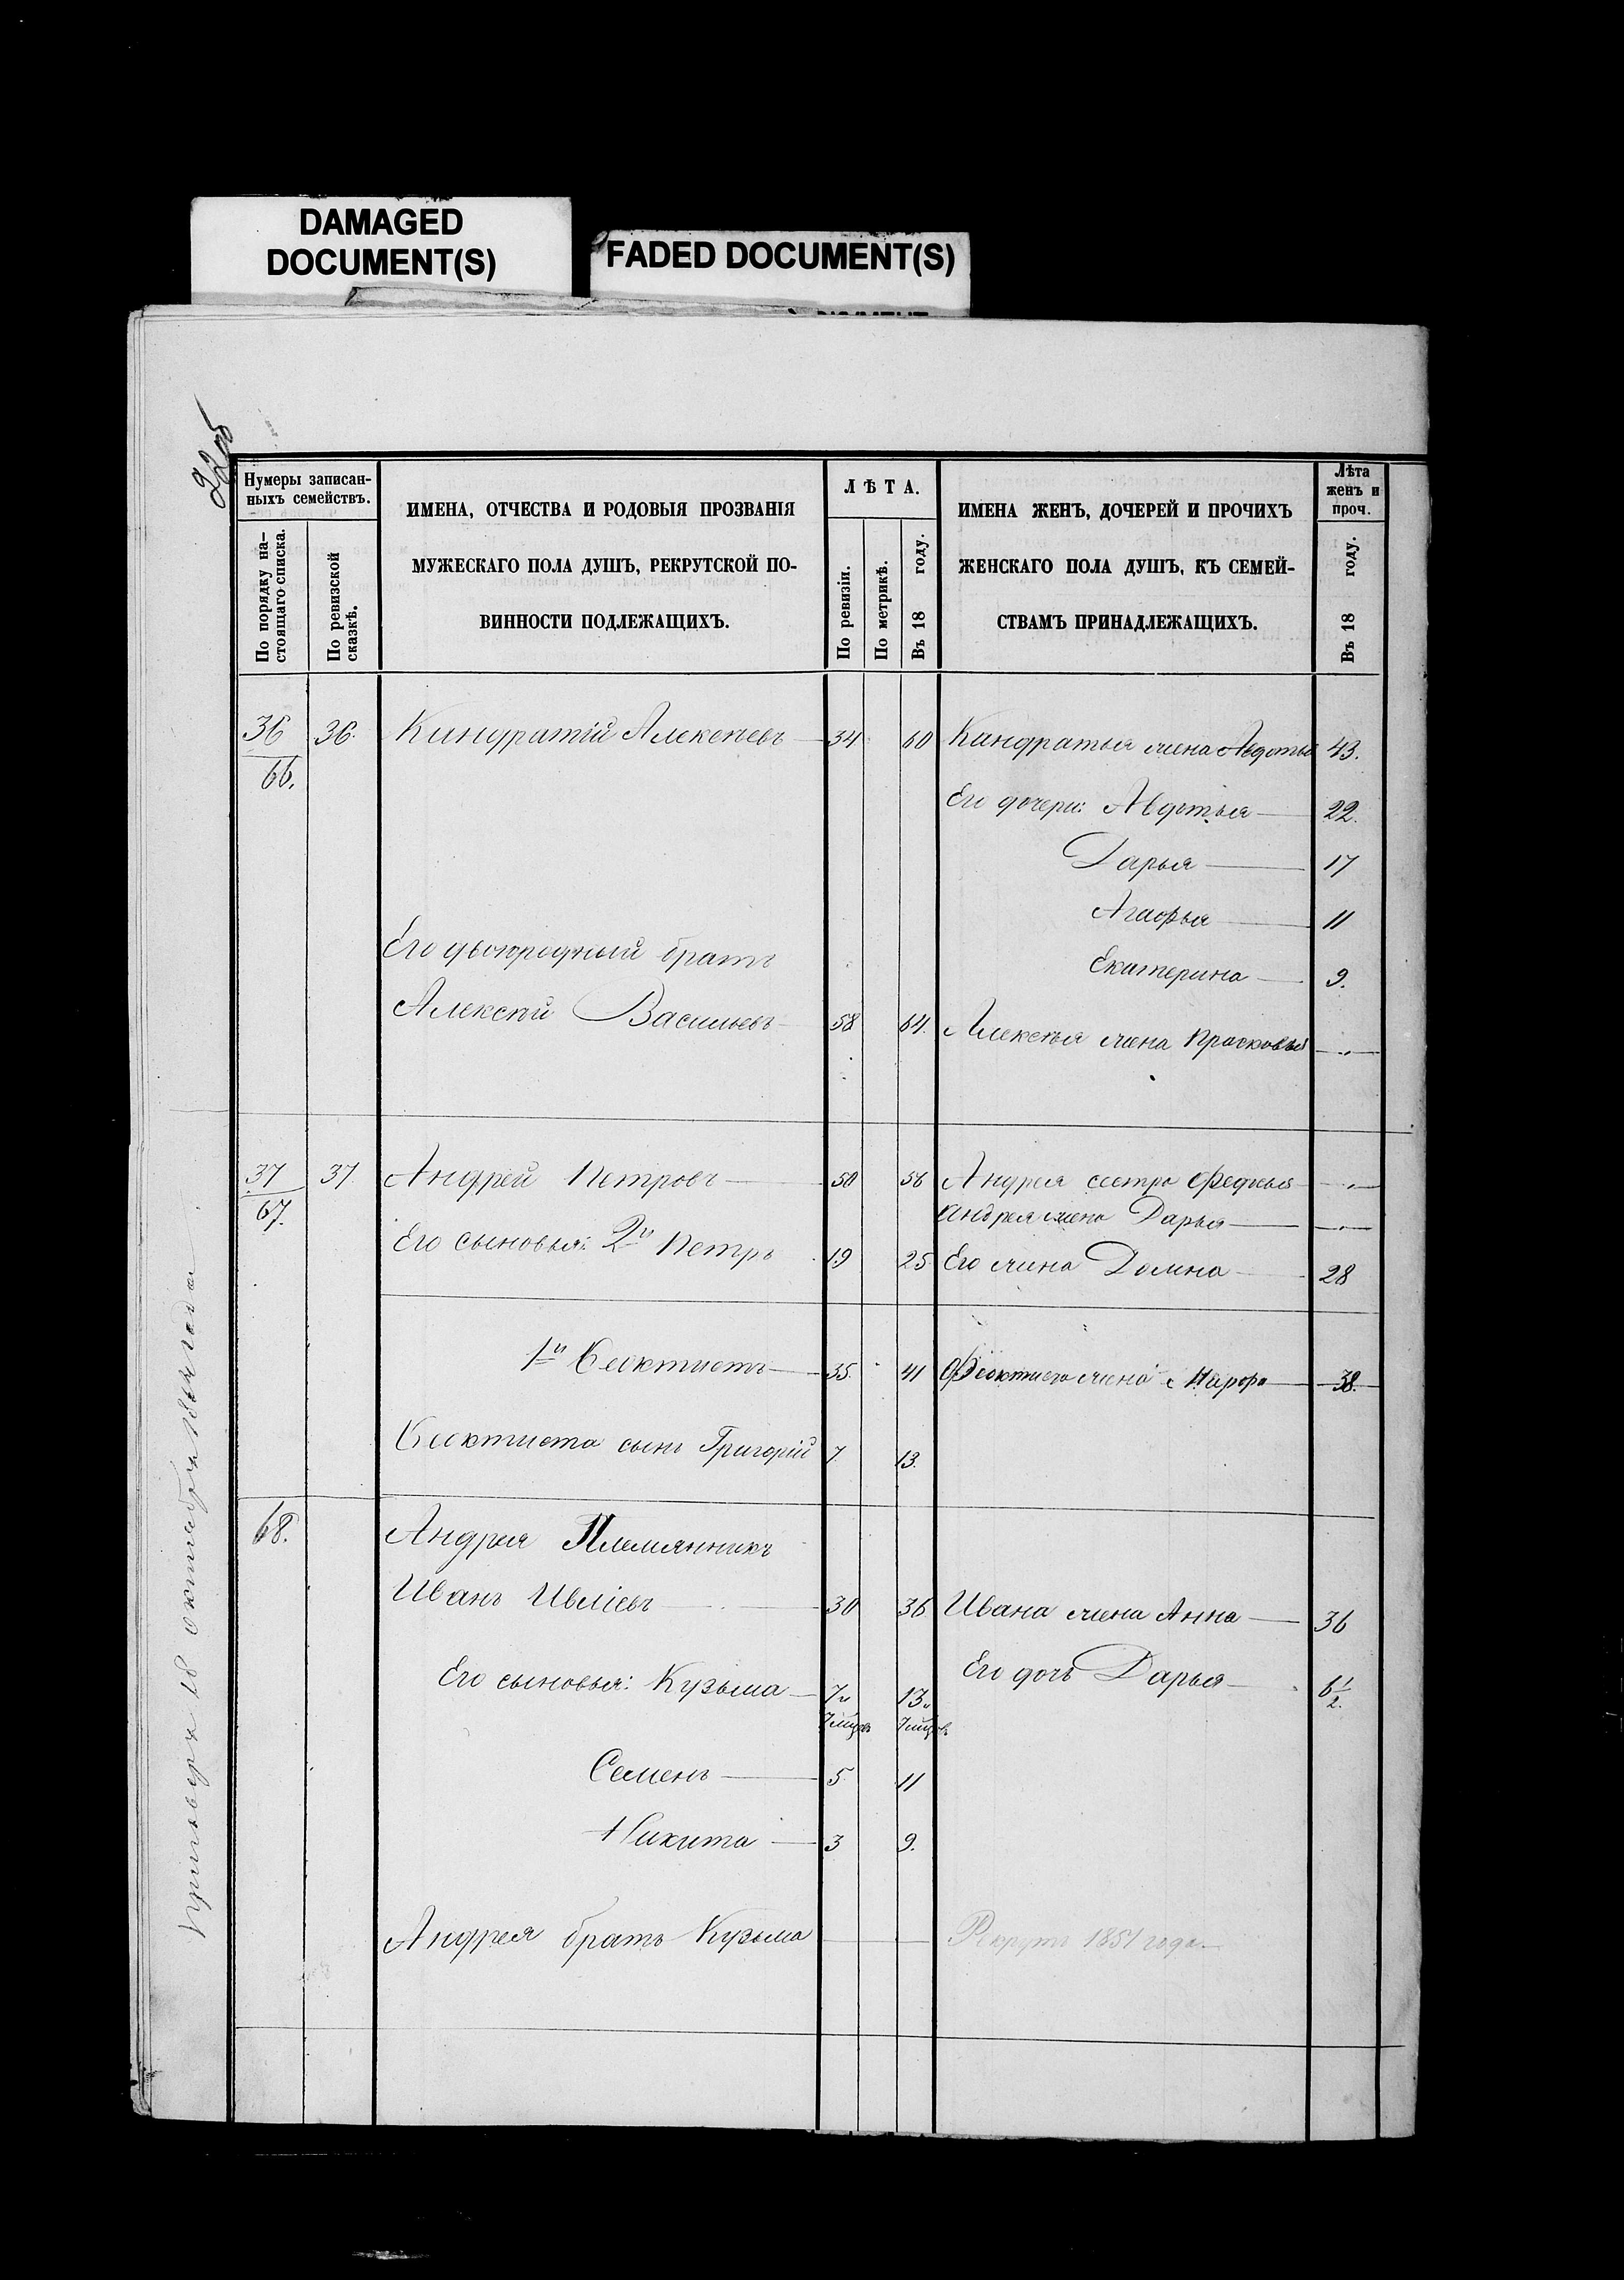 DAMAGED
DOCUMENT(S)
FADED DOCUMENT(S)
22об
Нумеры записан-
ныхъ семействъ.
По порядку на-
стоящаго списка.
По ревизской
сказкѣ.
ИМЕНА, ОТЧЕСТВА И РОДОВЫЯ ПРОЗВАНІЯ
МУЖЕСКАГО ПОЛА ДУШЪ, РЕКРУТСКОЙ ПО-
ВИННОСТИ ПОДЛЕЖАЩИХЪ.
ЛѢТА.
По ревизіи.
По метрикѣ.
Въ 18 году.
ИМЕНА ЖЕНЪ, ДОЧЕРЕЙ И ПРОЧИХЪ
ЖЕНСКАГО ПОЛА ДУШЪ, КЪ СЕМЕЙ-
СТВАМЪ ПРИНАДЛЕЖАЩИХЪ.
Лѣта
женъ и
проч.
Въ 18 году.
36 36. Киндратій Алексѣевъ 34 60 Киндратья жена Авдотья 43.
66.
Его дочери: Авдотья 22.
Дарья 17
Агафья 11
Его двоюродный братъ
Екатерина 9.
Алексѣй Васильевъ 58 64. Алексѣя жена Прасковья
37 37 Андрей Петровъ 50 56 Андрея сестра Федосья
67. Андрея жена Дарья
Его сыновья: 2й Петръ 19 25 Его жена Домна 28
1й Ѳеоктистъ 35. 41 Феоктиста жена Марфа 38.
Ѳеоктиста сынъ Григорій 7 13.
68. Андрея Племянникъ
Иванъ Ивлíевъ 30 36 Ивана жена Анна 36
Его сыновья: Кузьма 7и 13и Его дочь Дарья 6 1/2.
Семенъ 5 11
Никита 3 9.
Андрея братъ Кузьма Рекрутъ 1851 года.
18 октября